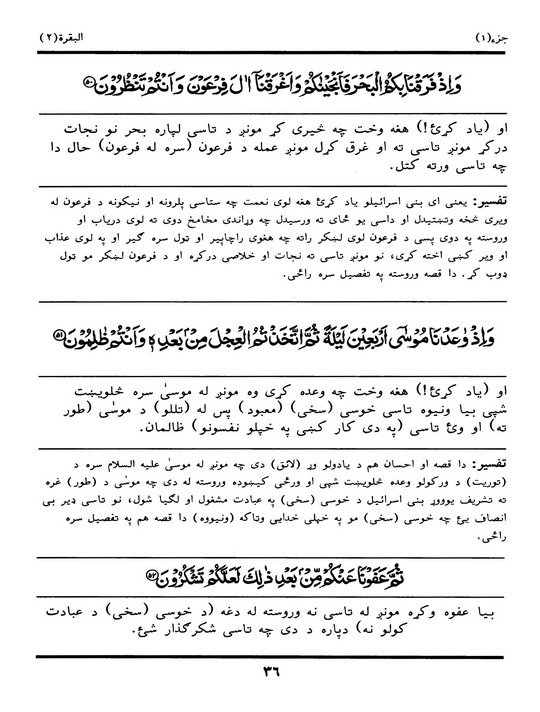 جزء(١) البقرة(٢)
وَاِذْ فَرَقْنَا بِكُمُ الْبَحْرَ فَاَنْجَيْنٰكُمْ وَاَغْرَقْنَآ اٰلَ فِرْعَوْنَ وَاَنْتُمْ تَنْظُرُوْنَ ﴿٥٠﴾
او (ياد کړئ!) هغه وخت چه څيري کړ مونږ د تاسي لپاره بحر نو نجات
درکړ مونږ تاسي ته او غرق کړل مونږ عمله د فرعون (سره له فرعون) حال دا
چه تاسي ورته کتل.
تفسير: يعنى اى بنى اسرائيلو ياد کړئ هغه لوى نعمت چه ستاسي پلرونه او نيکونه د فرعون له
ويرى څخه وتښتيدل او داسى يو ځاى ته ورسيدل چه وړاندى مخامخ دوى ته لوى درياب او
وروسته په دوى پسى د فرعون لوى لښکر راته چه هغوى راچاپير او ټول سره ګير او په لوى عذاب
او وير کښى اخته کړى، نو مونږ تاسى ته نجات او خلاصى درکړه او د فرعون لښکر مو ټول
ډوب کړ. دا قصه وروسته په تفصيل سره راځى.
وَاِذْ وٰعَدْنَا مُوْسٰٓى اَرْبَعِيْنَ لَيْلَةً ثُمَّ اتَّخَذْتُمُ الْعِجْلَ مِنْۢ بَعْدِهٖ وَاَنْتُمْ ظٰلِمُوْنَ ﴿٥١﴾
او (ياد کړئ!) هغه وخت چه وعده کړى وه مونږ له موسىٰ سره څلويښت
شپى بيا ونيوه تاسى خوسى (سخى) (معبود) پس له (تللو) د موسٰى (طور
ته) او وئ تاسى (په دى کار کښى په خپلو نفسونو) ظالمان.
تفسير: دا قصه او احسان هم د يادولو وړ (لائق) دى چه مونږ له موسىٰ عليه السلام سره د
(توريت) د ورکولو وعده څلويښت شپى او ورځى کيښوده وروسته له دى چه موسٰى د (طور) غره
ته تشريف يووړ بنى اسرائيل د خوسى (سخى) په عبادت مشغول او لګيا شول، نو تاسى ډير بى
انصاف يئ چه خوسى (سخى) مو په خپلى خدايى وتاکه (ونيووه) دا قصه هم په تفصيل سره
راځى.
ثُمَّ عَفَوْنَا عَنْكُمْ مِّنْۢ بَعْدِ ذٰلِكَ لَعَلَّكُمْ تَشْكُرُوْنَ ﴿٥٢﴾
بيا عفوه وکړه مونږ له تاسى نه وروسته له دغه (د خوسى (سخى) د عبادت
کولو نه) دپاره د دى چه تاسى شکرګذار شئ.
٣٦